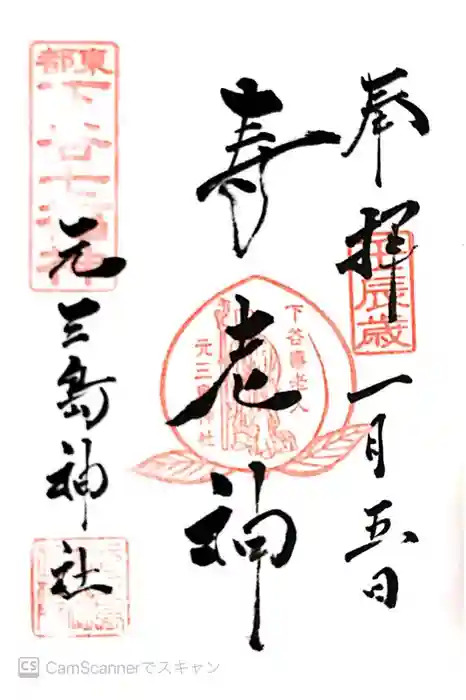 奉拝
甲辰歳
一月五日
寿老神
下谷寿老人
元三島神社
東都
下谷七福神
元三島神社
CamScannerでスキャン